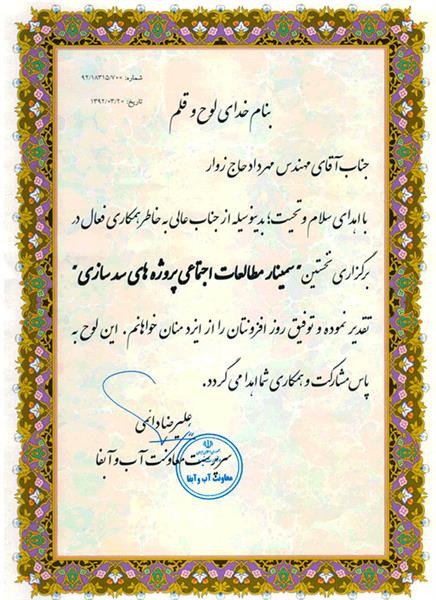 شماره: ۹۲/۱۸۳۱۵/۷۰۰
تاریخ: ۱۳۹۲/۰۳/۲۰
بنام خدای لوح و قلم
جناب آقای مهندس مهرداد حاج زوار
با اهدای سلام و تحیت؛ بدینوسیله از جناب عالی به خاطر همکاری فعال در
برگزاری نخستین "سمینار مطالعات اجتماعی پروژه های سد سازی"
تقدیر نموده و توفیق روز افزونتان را از ایزد منان خواهانم. این لوح به
پاس مشارکت و همکاری شما اهدا می گردد.
علیرضا دائمی
سرپرست معاونت آب و آبفا
معاونت آب و آبفا